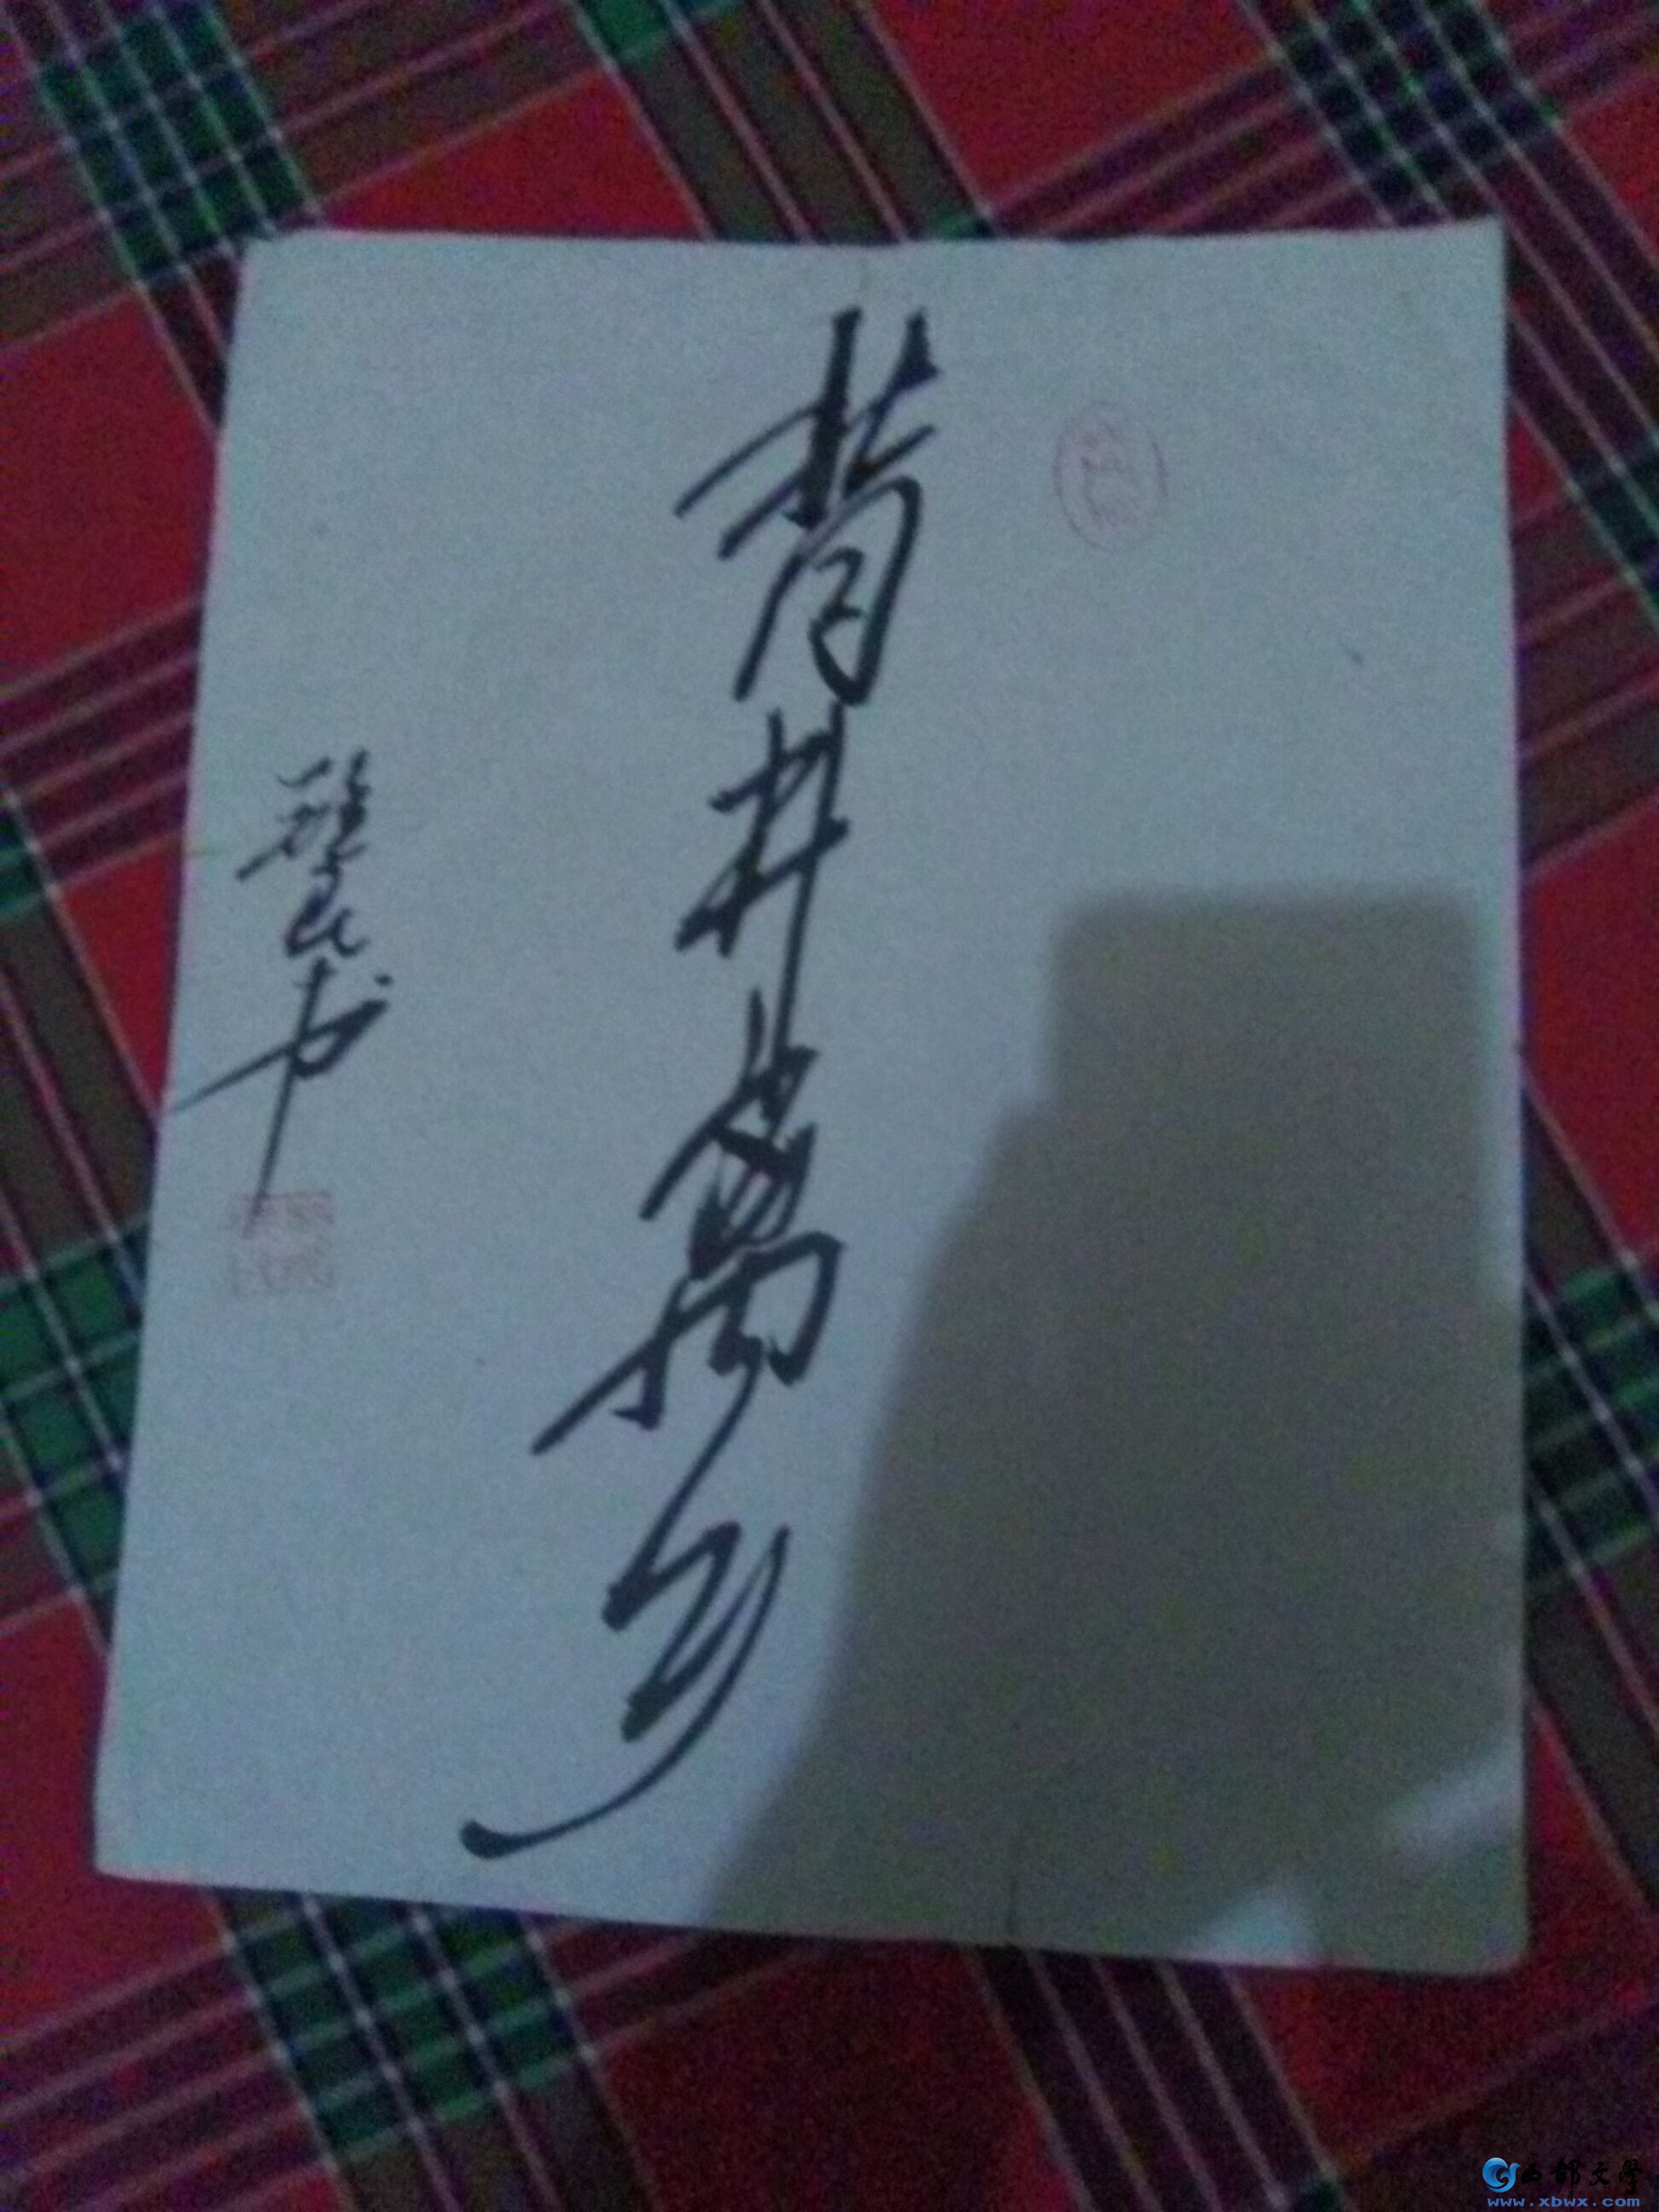 背井离乡
民书
西部文學
www.xbwx.com